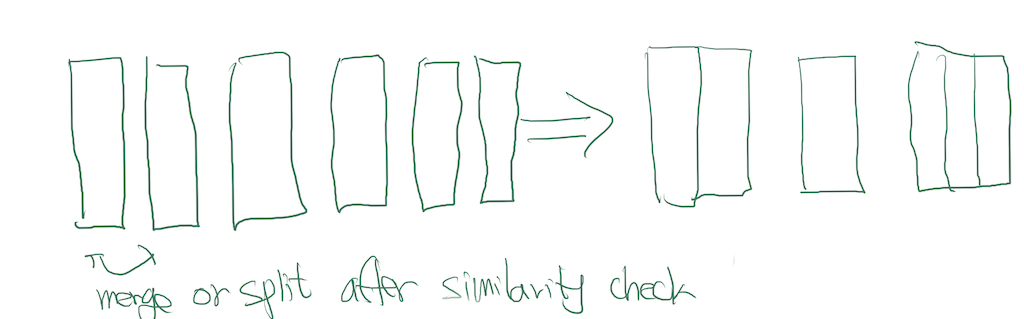 merge or split after similarity check